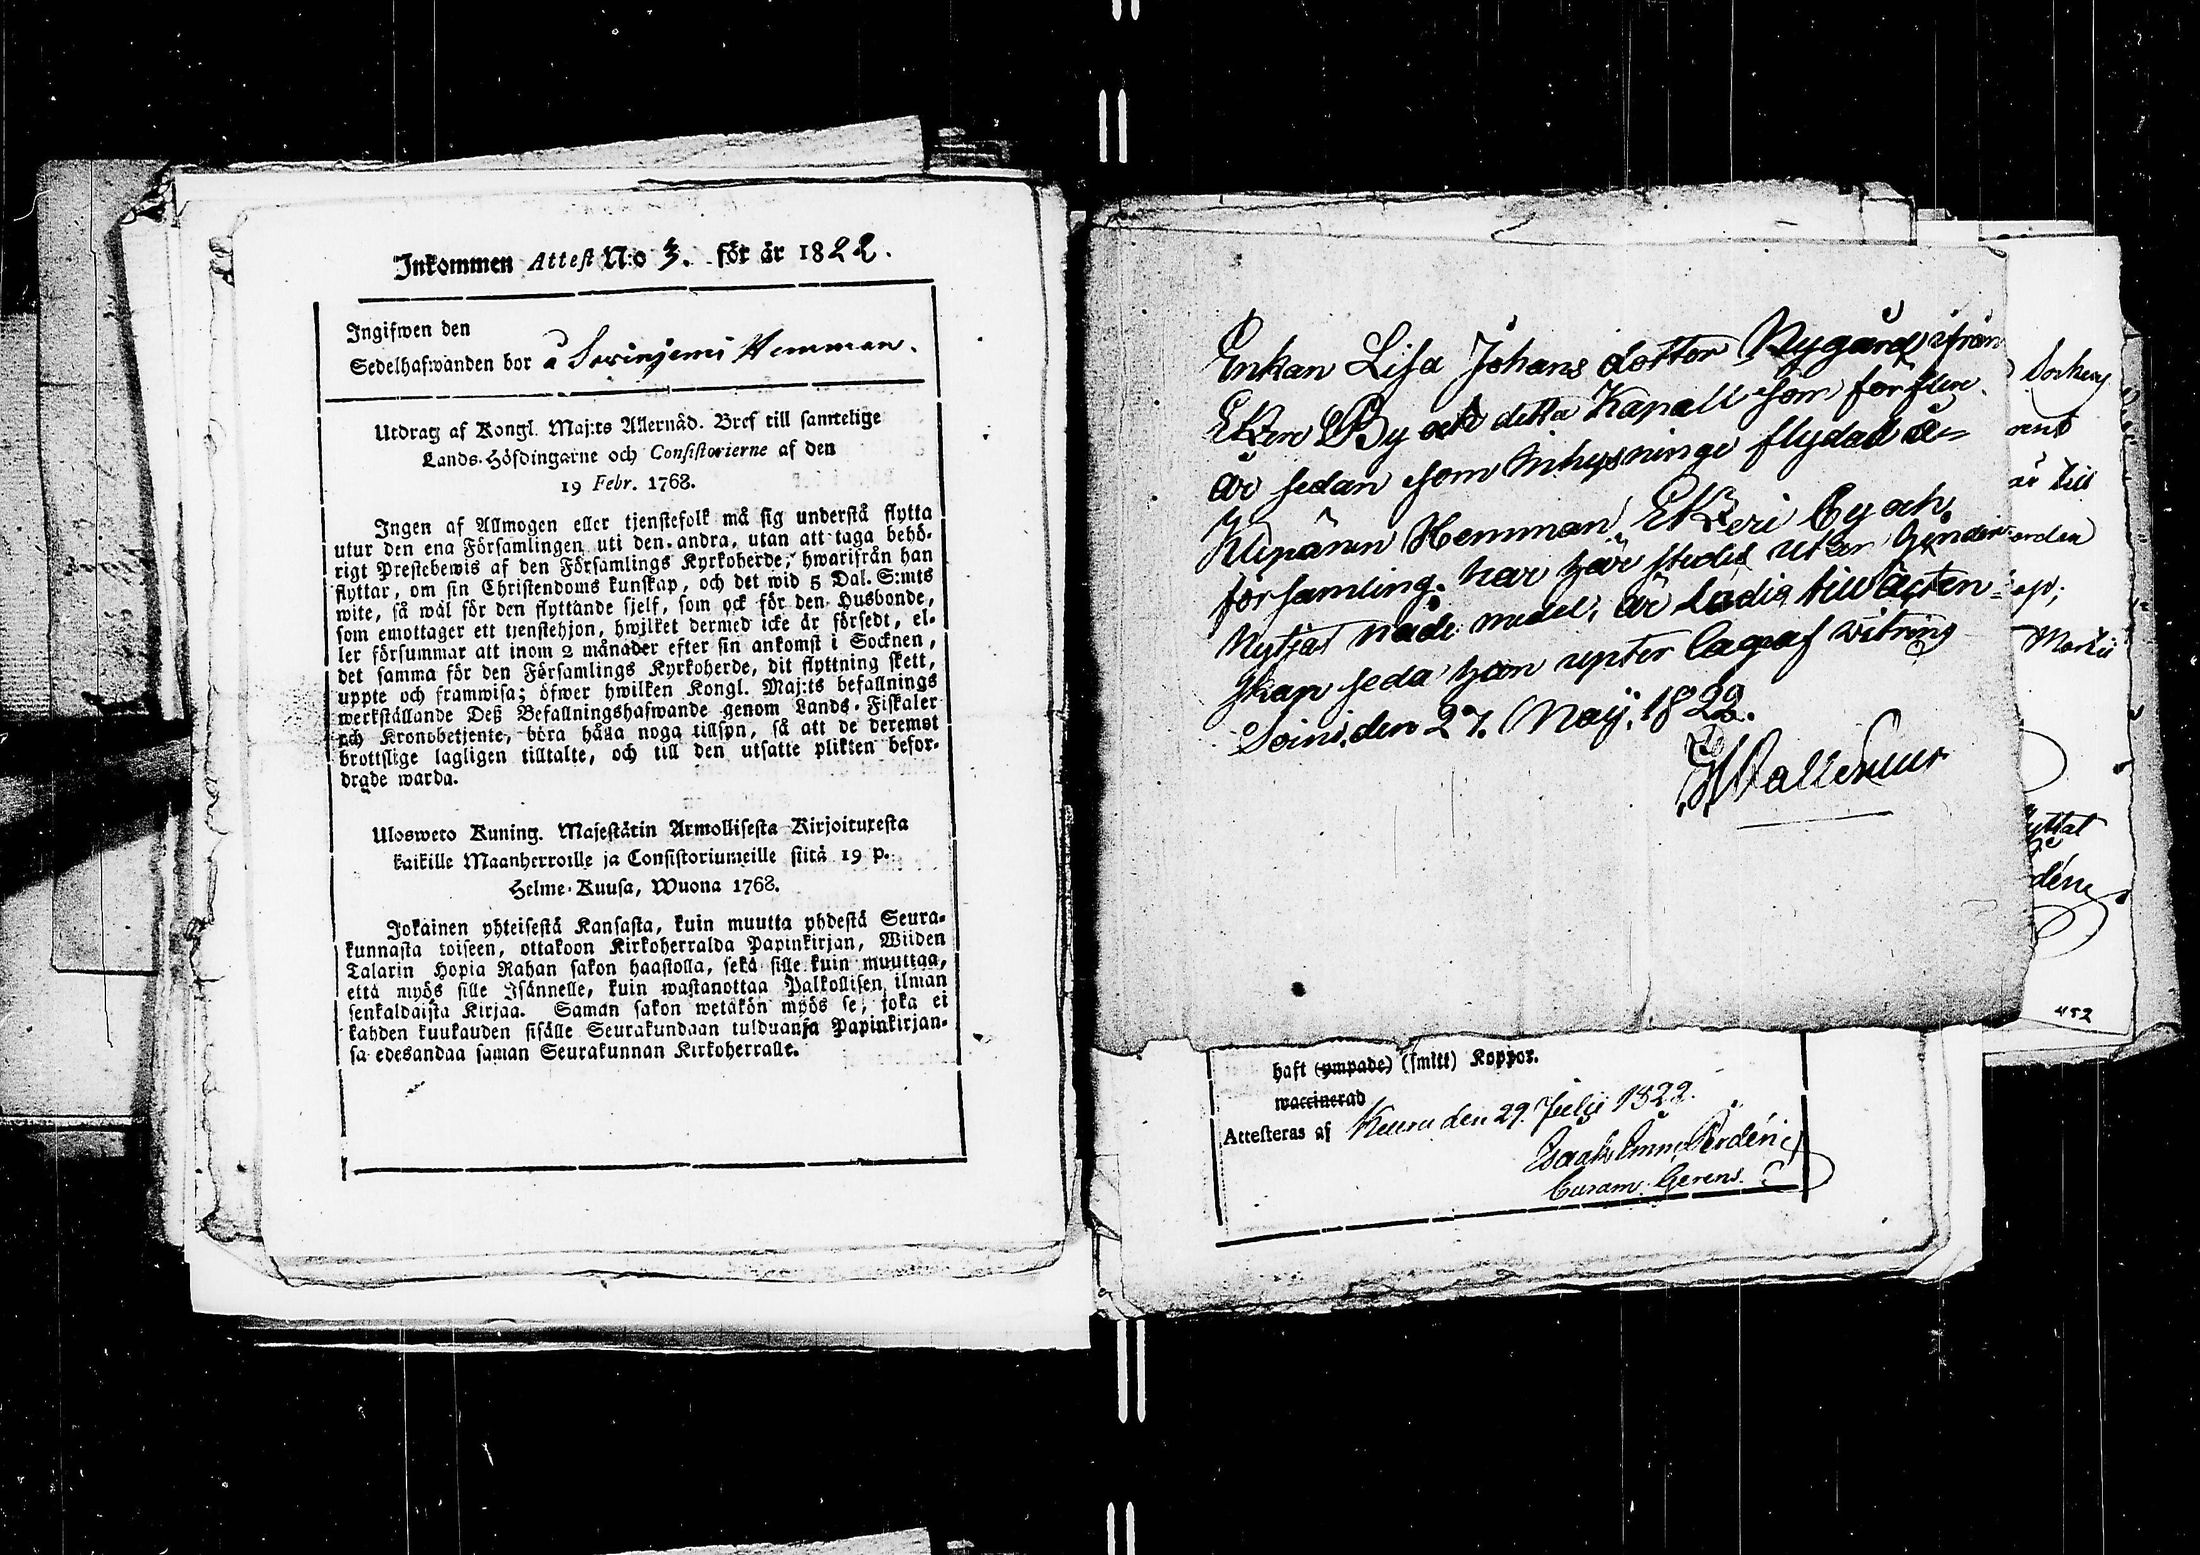 Inkommen Attest N:o 3. för år 1822.
Ingifwen den
Sedelhafwanden bor å Hemman.
Utdrag af Kongl. Maj:ts Allernåd. Bref till samtelige
Lands-Höfdingarne och Consistorierne af den
19 Febr. 1768.
Ingen af Allmogen eller tjenstefolk må sig understå flytta
utur den ena Församlingen uti den andra, utan att taga behö-
rigt Prestebewis af den Församlings Kyrkoherde, hwarifrån han
flyttar, om sin Christendoms kunskap, och det wid 5 Dal. S:mts
wite, så wäl för den flyttande sjelf, som ock för den Husbonde,
som emottager ett tjenstehjon, hwilket dermed icke är försedt, el-
ler försummar att inom 2 månader efter sin ankomst i Socknen,
det samma för den Församlings Kyrkoherde, dit flyttning skett,
uppte och framwisa; öfwer hwilken Kongl. Maj:ts befallnings
werkställande Deß Befallningshafwande genom Lands-Fiskaler
och Kronobetjente, böra hålla noga tillsyn, så att de deremot
brottslige lagligen tilltalte, och till den utsatte plikten befor-
drade warda.
Ulosweto Kuning. Majestätin Armollisesta Kirjoituxesta
kaikille Maanherroille ja Consistoriumeille siitä 19 p.
Helme-Kuusa, Wuona 1768.
Jokainen yhteisestä Kansasta, kuin muutta yhdestä Seura-
kunnasta toiseen, ottakoon Kirkoherralda Papinkirjan, Wiiden
Talarin Hopia Rahan sakon haastolla, sekä sille kuin muuttaa,
että myös sille Isännelle, kuin wastanottaa Palkollisen ilman
senkaldaista Kirjaa. Saman sakon wetäkön myös se, joka ei
kahden kuukauden sisälle Seurakundaan tulduansa Papinkirjan-
sa edesandaa saman Seurakunnan Kirkoherralle.
Enkan Lisa Johans dotter Nygård ifrån
By och detta Kapell som for flere
år sedan som Inhysninge flydad å
Hemman, by och
församling. har här stedse
Nytjat nåde medel, är Ledig till äcten-
skap seda hon
Soini den 27. Maij. 1822.
haft (ympade) (smitt) Koppor.
waccinerad
Attesteras af Keuru den 29. Julii 1822.
Isaak Emn.
Curam Gerens.
till
Martii
452